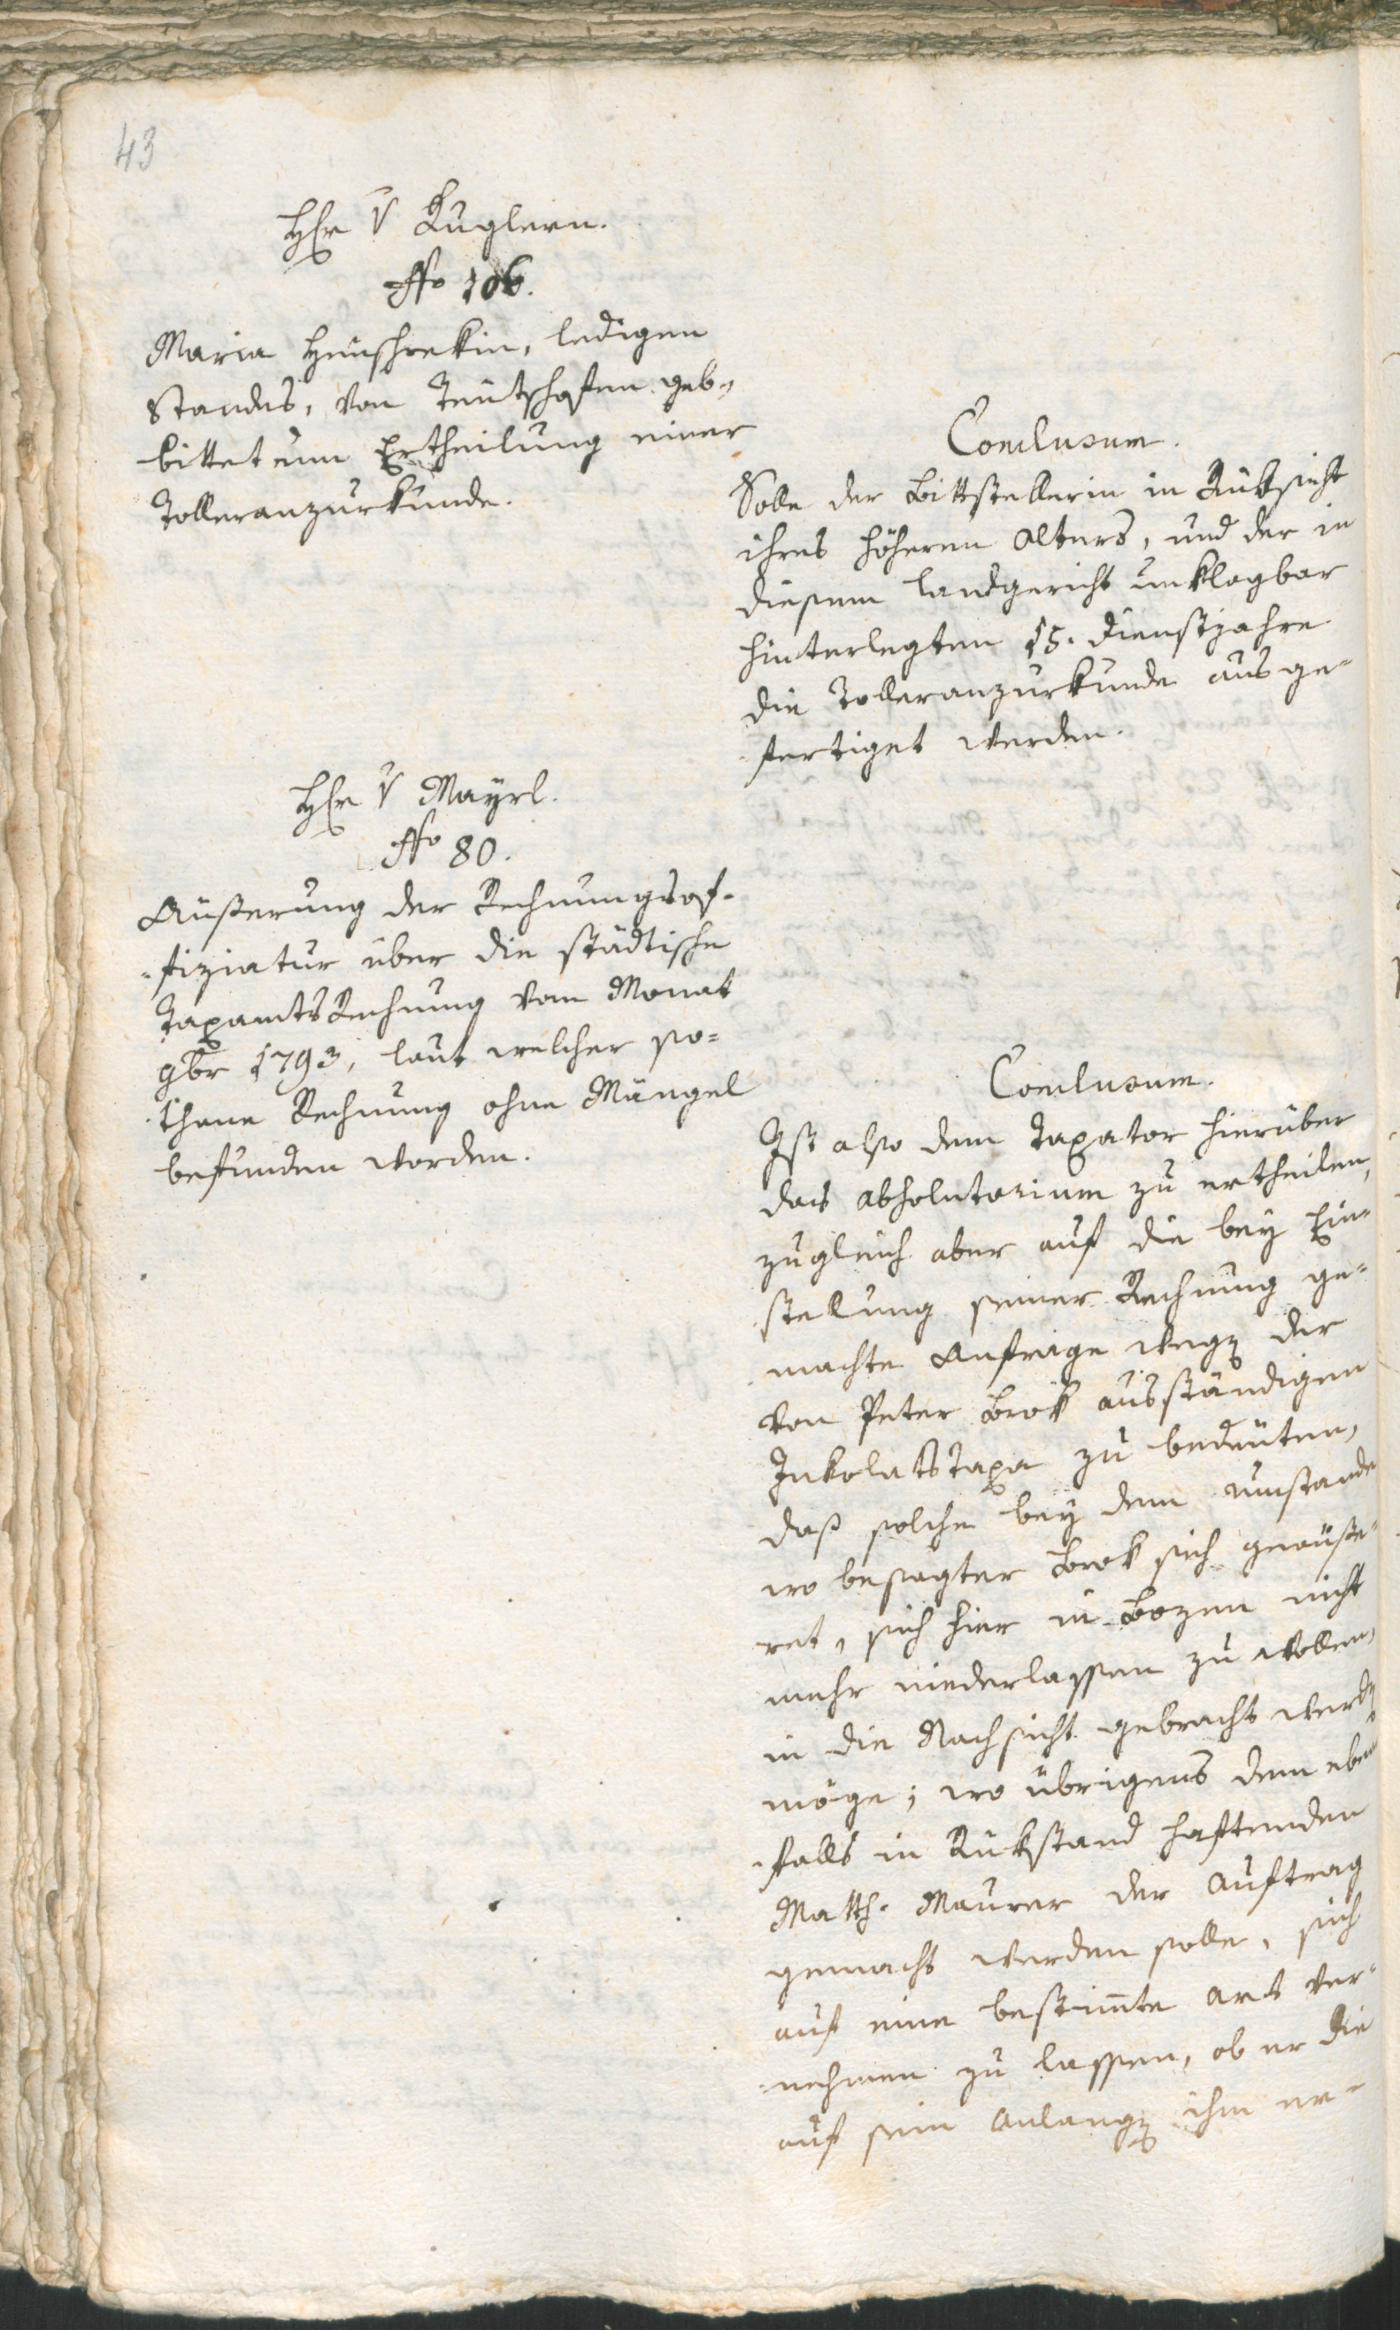 43
Hr v Kuglern.
No 106.
Maria Heuschrekin, ledigen
Standes, von Teutschofen geb.,
bittet um Ertheilung einer
Tolleranzurkunde.
Conclusum.
Solle der Bittstellerin in Rüksicht
ihres höheren Alters, und der in
diesem Landgericht unklagbar
hinterlegten 15. Dienstjahre
die Tolleranzurkunde ausge-
fertiget werden.
Hr v Mayrl.
No 80.
Äußerung der Rechnungsof-
fiziatur über die städtische
Taxamts Rechnung vom Monat
9br 1793, laut welcher so-
thane Rechnung ohne Mängel
befunden worden.
Conclusum.
Ist also dem Taxator hierüber
das Absolutorium zu ertheilen,
zugleich aber auf die bey Ein-
stellung seiner Rechnung ge-
machte Anfrage wegen der
von Peter Brok ausständigen
Inkolatstaxe zu bedeuten,
daß solche bey dem Umstande
wo besagter Brok sich geäuße-
ret, sich hier in Bozen nicht
mehr niederlassen zu wollen,
in die Nachsicht gebracht werden
möge; wo übrigens dem eben-
falls in Rükstand haftenden
Matth. Maurer der Auftrag
gemacht werden solle, sich
auf eine bestimte Art ver-
nehmen zu lassen, ob er die
auf sein Anlangen ihm er-